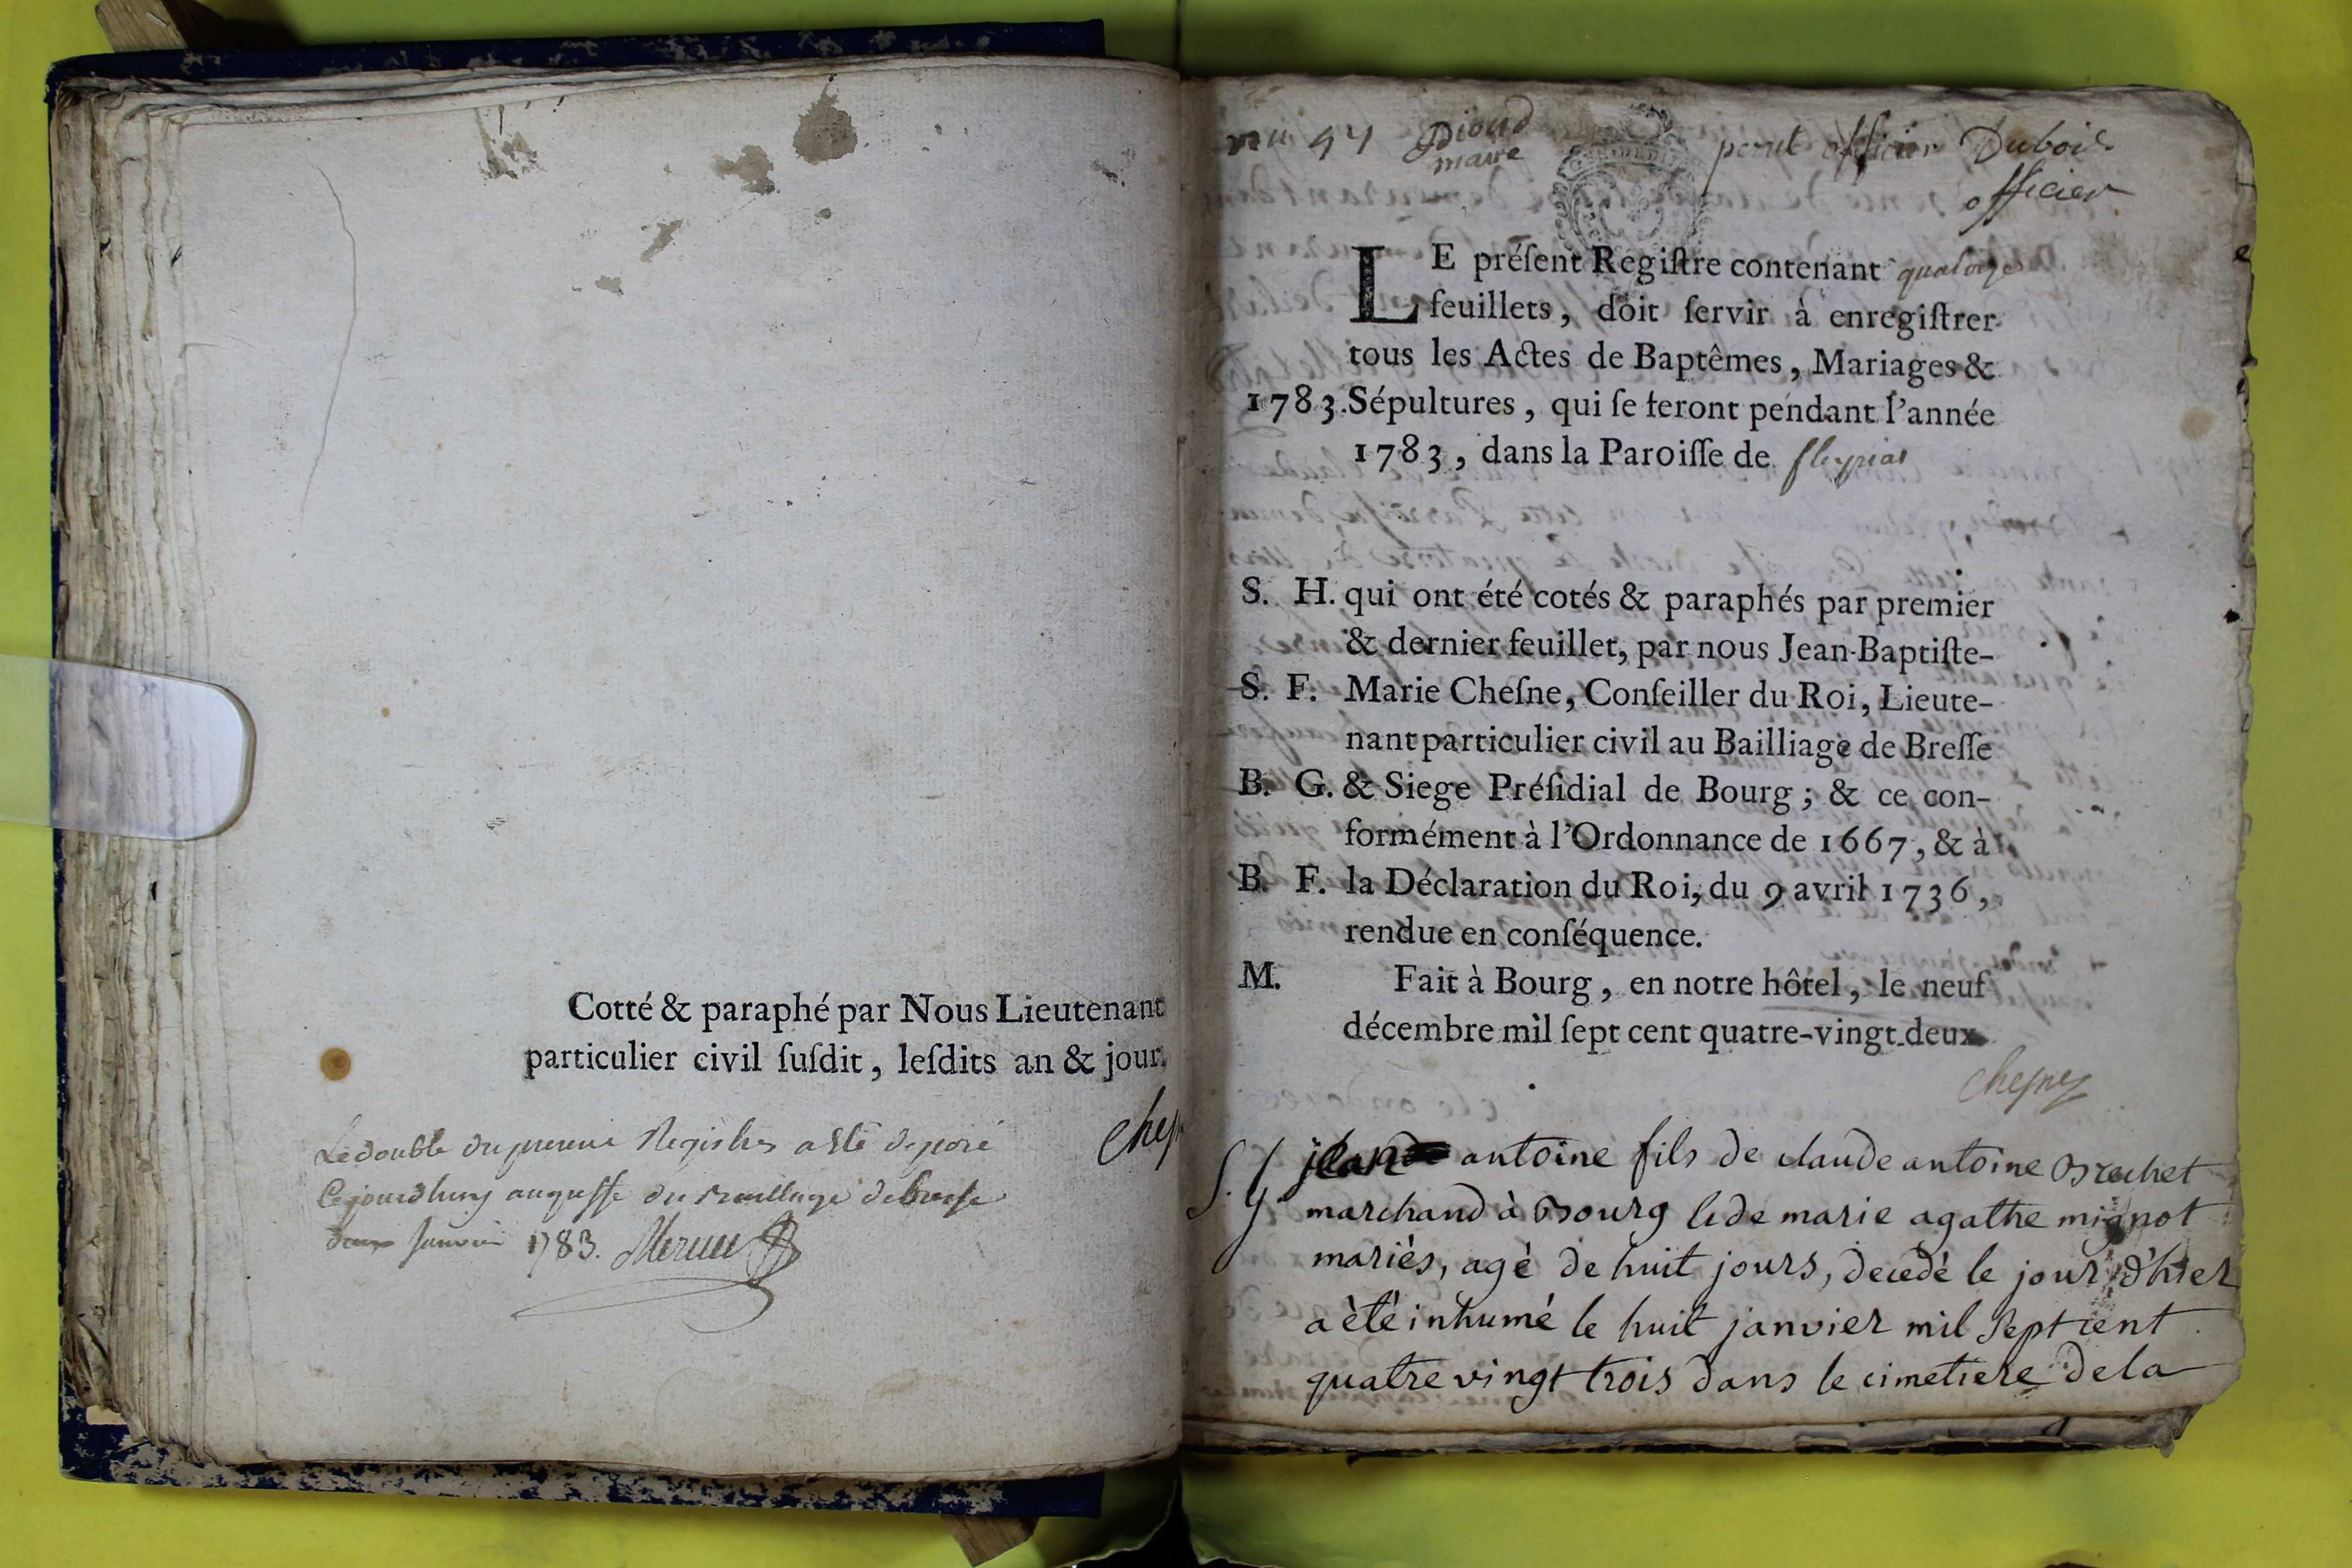 Cotté & paraphé par Nous Lieutenant
particulier civil ſuſdit, leſdits an & jour.
Le double du Registre a esté deposé
Cejourdhuy au greffe du Bailliage de bresse
janvier 1783.
94 maire Dubois
officier
LE préſent Regiſtre contenant quatorze
feuillets, doit ſervir à enregiſtrer
tous les Actes de Baptêmes, Mariages &
1783. Sépultures, qui ſe feront pendant l'année
1783, dans la Paroiſſe de fleyriat
S. H. qui ont été cotés & paraphés par premier
& dernier feuillet, par nous Jean-Baptiſte-
S. F. Marie Cheſne, Conſeiller du Roi, Lieute-
nant particulier civil au Bailliage de Breſſe
B. G. & Siege Préſidial de Bourg; & ce con-
formément à l'Ordonnance de 1667, & à
B. F. la Déclaration du Roi, du 9 avril 1736,
rendue en conſéquence.
M. Fait à Bourg, en notre hôtel, le neuf
décembre mil ſept cent quatre-vingt-deux
Chesne
S. G. jean antoine fils de claude antoine Brachet
marchand à Bourg & de marie agathe mignot
mariés, agé de huit jours, decedé le jour d'hier
a èté inhumé le huit janvier mil Sept cent
quatre vingt trois dans le cimetiere de la